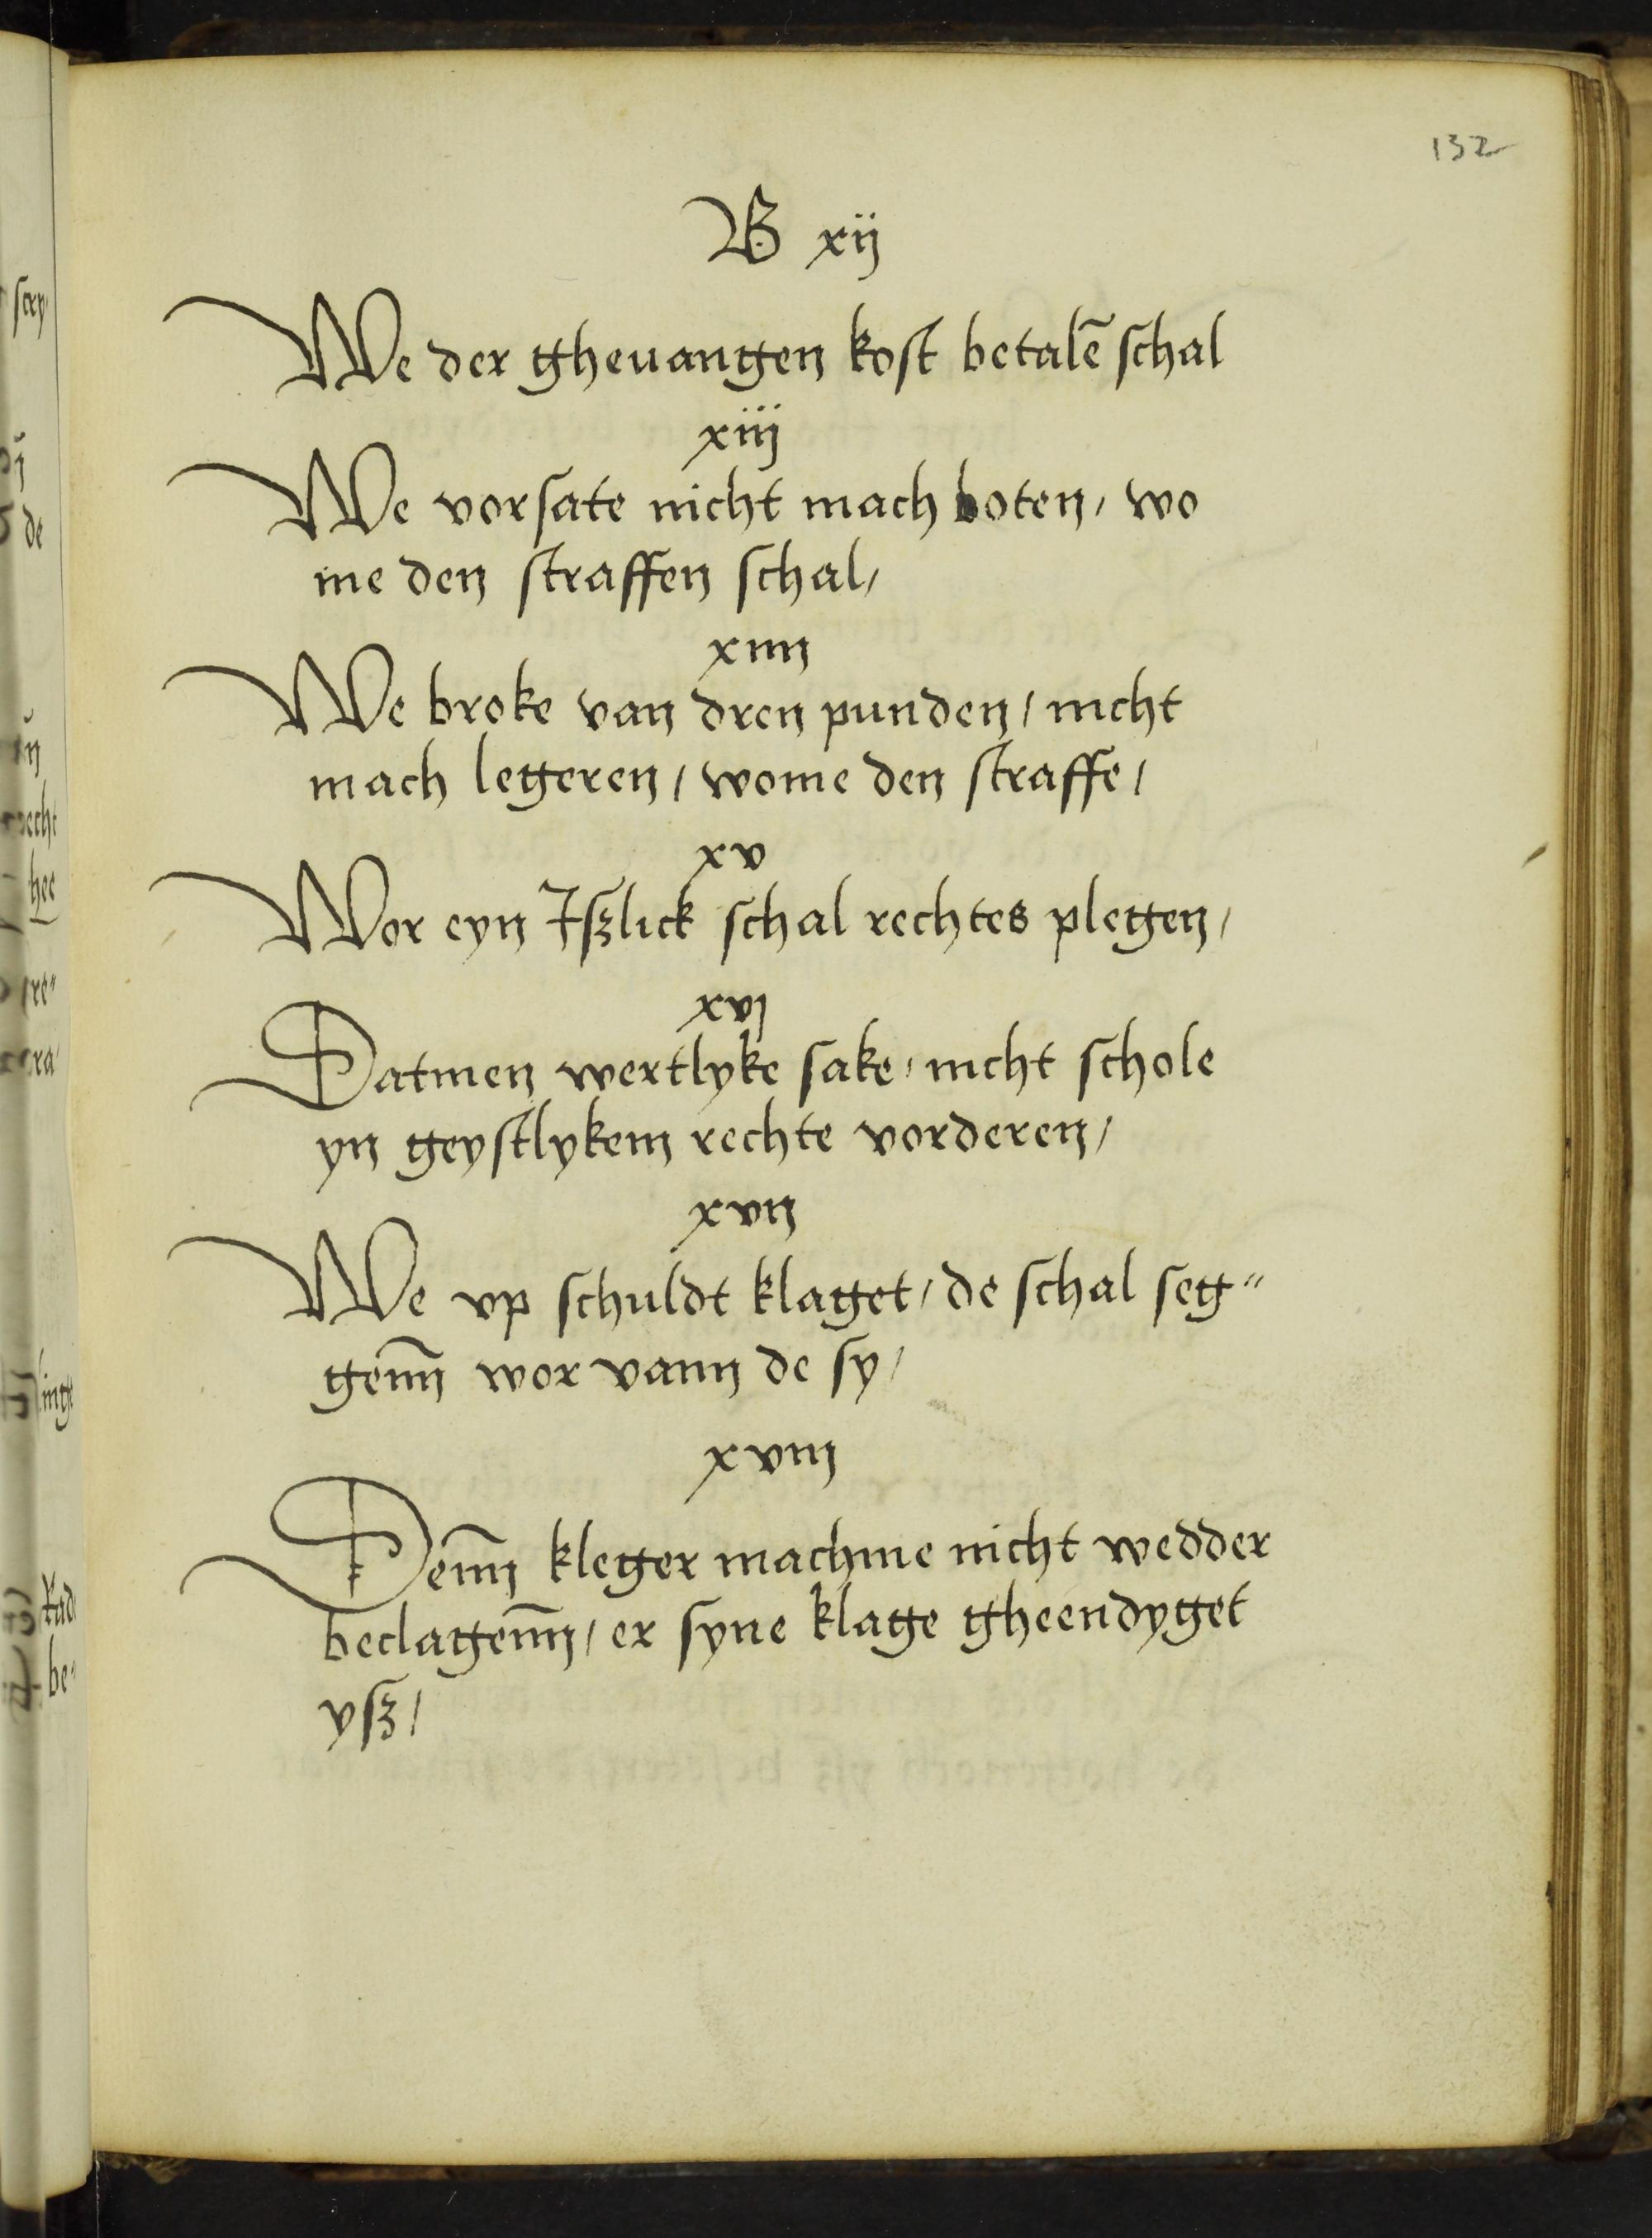 132
B xij
We der gheuangen kost betalē schal
xiij
We vorsate nicht mach boten / wo
me den straffen schal /
xiiij
We broke van dren punden / nicht
mach legeren / wome den straffe /
xv
Wor eyn Iſzlick schal rechtes plegen /
xvj
Datmen wertlyke sake / nicht schole
yn geystlykem rechte vorderen /
xvij
We vp schuldt klaget / de schal seg"
genn̄ wor vann de sy /
xviij
Denn̄ kleger machme nicht wedder
beclagenn̄ / er syne klage gheendyget
yſz /